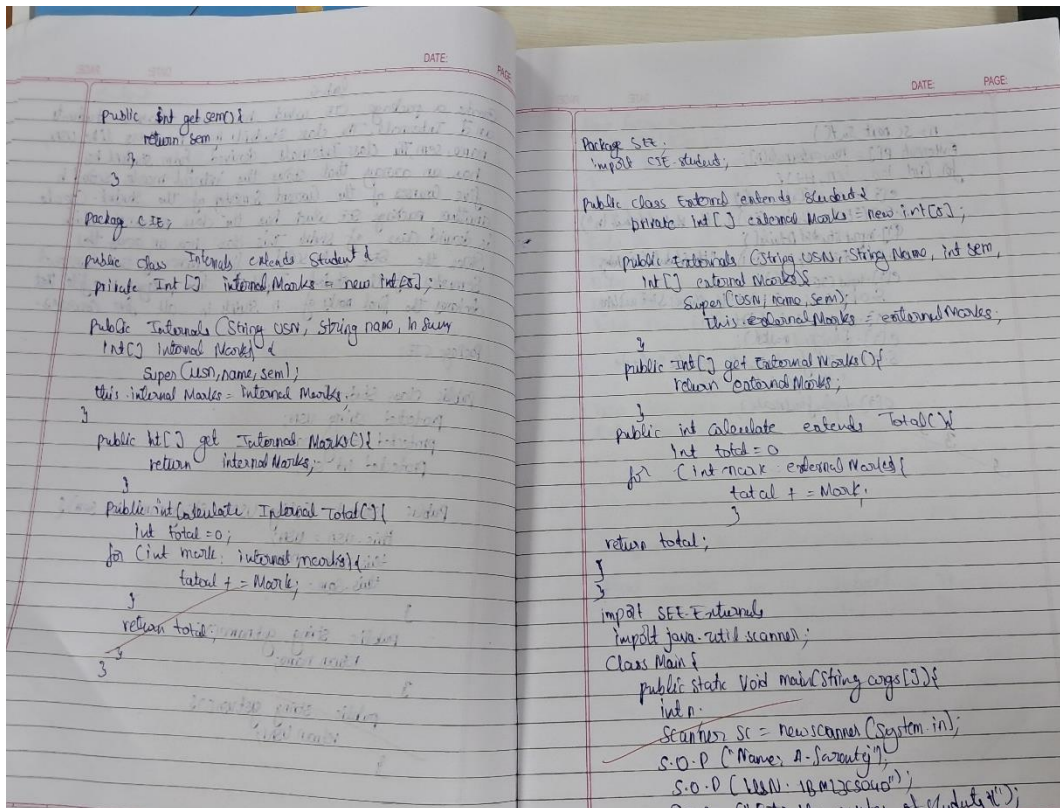 DATE:
PAGE
public int get sem() {
return sem;
}
}
Packag CIE;
public class Internals extends Student {
private Int [] internal Marks = new int [5];
public Internals (String USN, string name, in
Int [] Internal Marks {
Super (usn, name, sem);
this.internal Marks = Internal Marks;
}
public Int [] get Internal Marks () {
return internal Marks;
}
public int Calculate Internal Total () {
int total = 0;
for (int mark: internal marks) {
total + = Mark;
}
return total;
}
}
DATE:
PAGE:
Package SEE;
import CIE.student;
public class External extends Student {
private Int [] external Marks = new int [5];
public Externals (String USN, String Name, int sem,
Int [] external Marks {
Super (USN, name, sem);
this.external Marks = external Marks;
}
public Int [] get External Marks () {
return external Marks;
}
public int Calculate extends Total () {
Int total = 0
for (int mark external Marks {
total + = Mark;
}
return total;
}
}
import SEE.Externals
import java.util scanner;
Class Main {
public static Void main (String args []) {
int n.
Scanner sc = new scanner (System.in);
S.O.P ("Name:
S.O.P (USN: